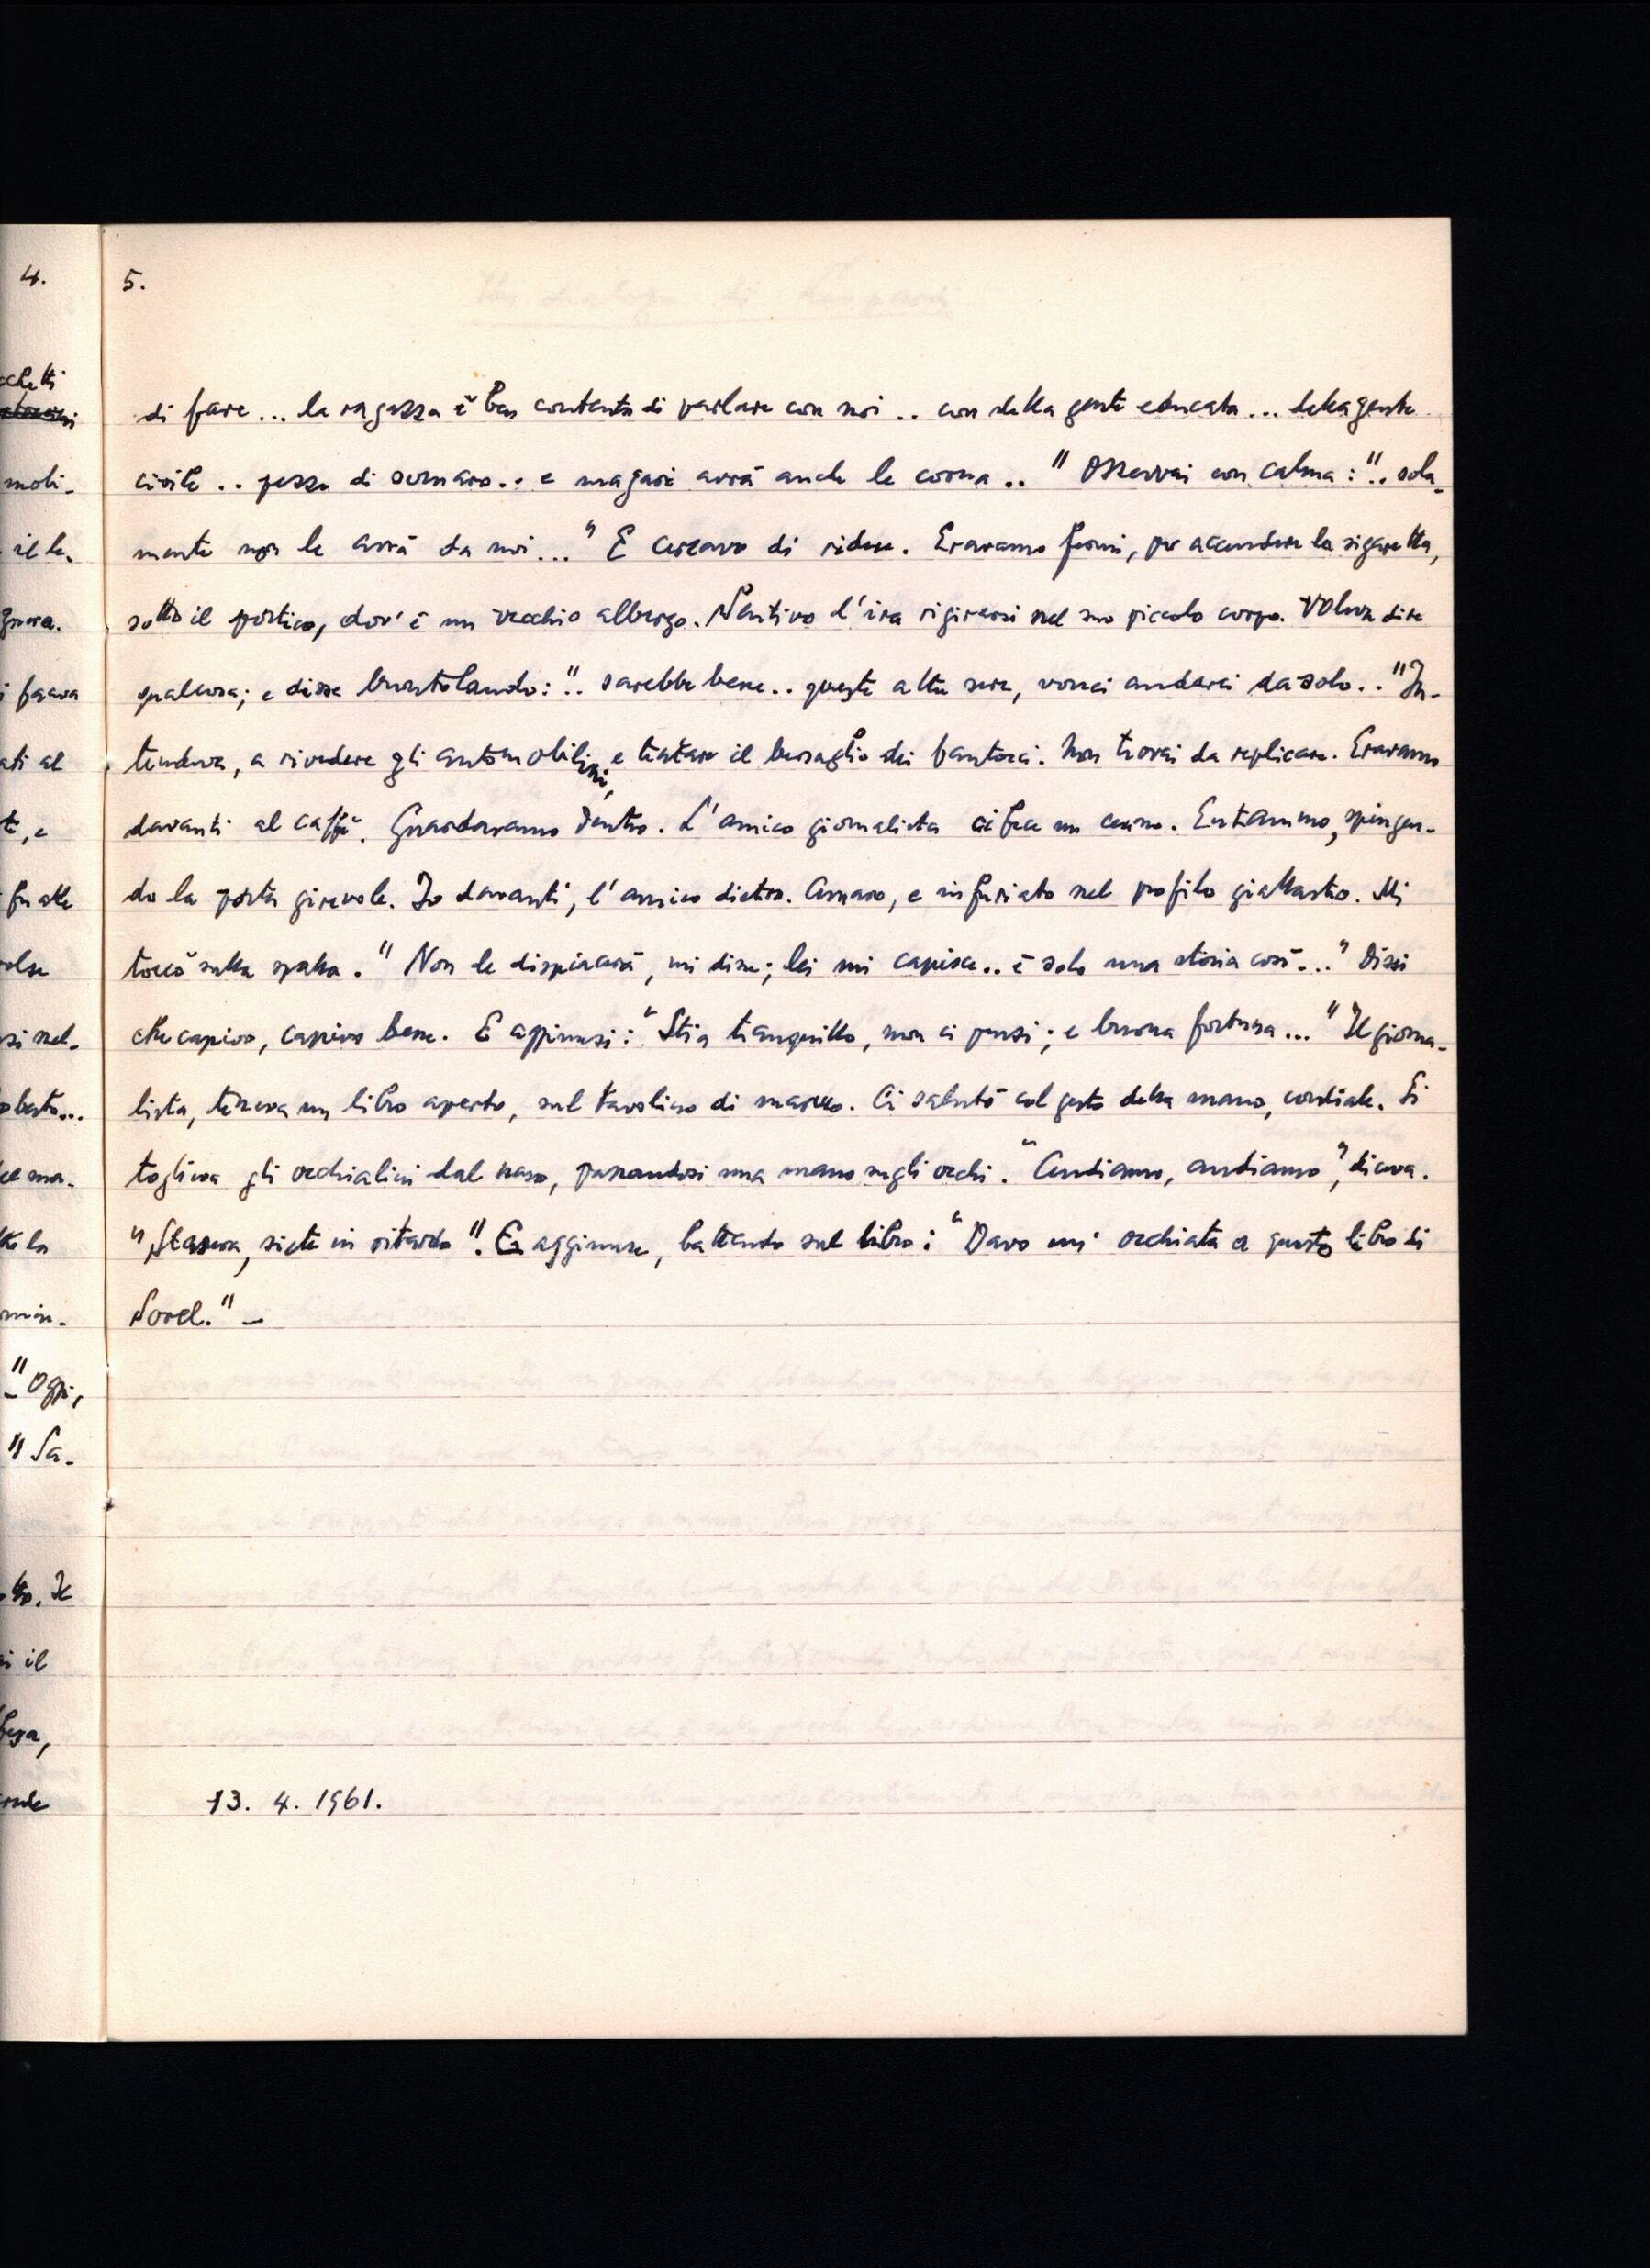 4.
5.
cchetti
di fare... la ragazza è ben contenta di parlare con noi.. con della gente educata... della gente
mobi-
civile.. pezzo di somaro.. e magari avrà anche le corna.." Osservai con calma: ".. sola-
il le.
mente non le avrà da noi..." E cercavo di ridere. Eravamo fermi, per accendere la sigaretta,
sotto il portico, dov'è un vecchio albergo. Sentivo l'ira rigirarsi nel suo piccolo corpo. Voleva dire
i faceva
qualcosa; e disse brontolando: ".. sarebbe bene.. queste altre sere, vorrei andarci da solo.." In-
ati al
tendeva, a rivedere gli automobilini, e tentare il bersaglio dei fantocci. Non trovai da replicare. Eravamo
te, e
davanti al caffè. Guardavamo dentro. L'amico giornalista ci fece un cenno. Entrammo, spingen-
fu alle
do la porta girevole. Io davanti, l'amico dietro. Amaro, e infuriato nel profilo giallastro. Mi
olse
toccò sulla spalla. "Non le dispiacerà, mi disse; lei mi capisce.. è solo una storia così..." Dissi
si nel-
che capivo, capivo bene. E aggiunsi: "Stia tranquillo, non ci pensi; e buona fortuna..." Il giorna-
oberto...
lista, teneva un libro aperto, sul tavolino di marmo. Ci salutò col gesto della mano, cordiale. Si
ce ma.
toglieva gli occhialini dal naso, passandosi una mano sugli occhi. "Andiamo, andiamo", diceva.
"Stasera, siete in ritardo". E aggiunse, battendo sul libro: "Davo un'occhiata a questo libro di
Sorel." –
– "Oggi,
"Sa-
tto. Il
i il
13. 4. 1961.